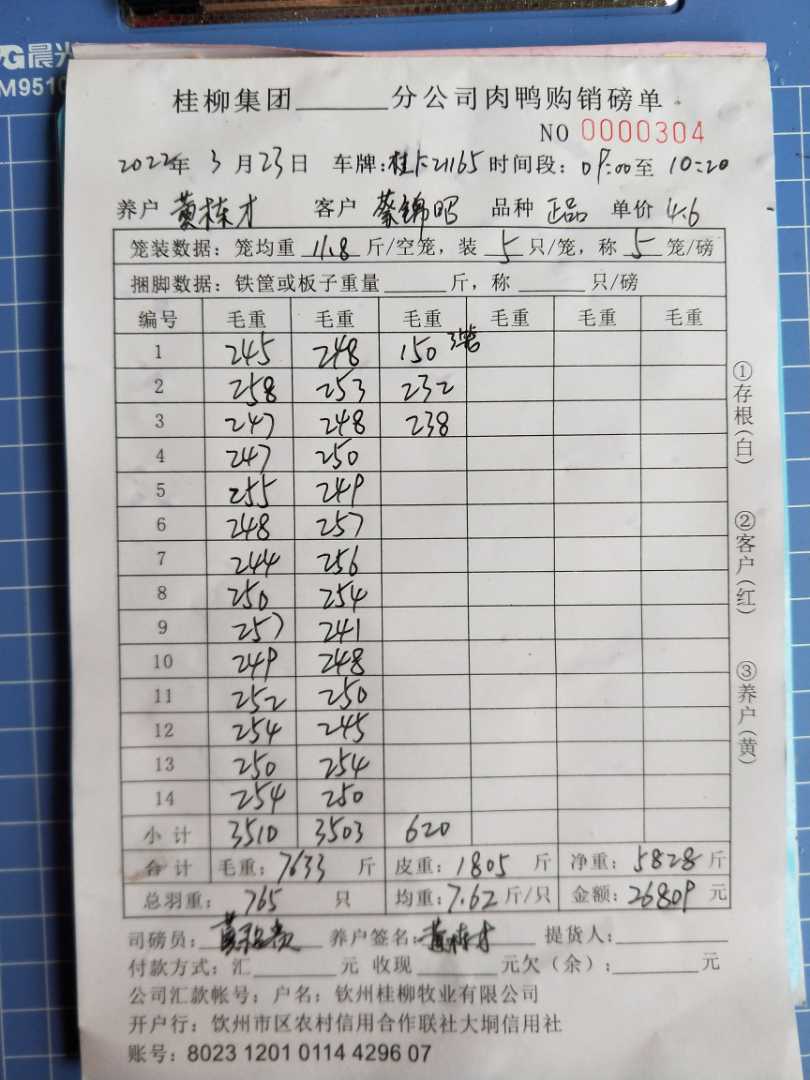 晨光
M9510
桂柳集团______分公司肉鸭购销磅单
NO 0000304
2022年 3 月 23 日 车牌:桂K21165 时间段: 09:00 至 10:20
养户 黄栋才 客户 蔡锦昭 品种 正品 单价 4.6
笼装数据: 笼均重 11.8 斤/空笼, 装 5 只/笼, 称 5 笼/磅
捆脚数据: 铁筐或板子重量______斤, 称______只/磅
编号 毛重 毛重 毛重 毛重 毛重 毛重
1 245 248 150 3笼
2 258 253 232
3 247 248 238
4 247 250
5 255 249
6 248 257
7 244 256
8 250 254
9 257 241
10 249 248
11 252 250
12 254 245
13 250 254
14 254 250
小计 3510 3503 620
合计 毛重: 7633 斤 皮重: 1805 斤 净重: 5828 斤
总羽重: 765 只 均重: 7.62 斤/只 金额: 26809 元
司磅员: 养户签名: 黄栋才 提货人:______
付款方式: 汇______元 收现______元欠(余):______元
公司汇款帐号: 户名: 钦州桂柳牧业有限公司
开户行: 钦州市区农村信用合作联社大垌信用社
账号: 8023 1201 0114 4296 07
①存根(白)
②客户(红)
③养户(黄)